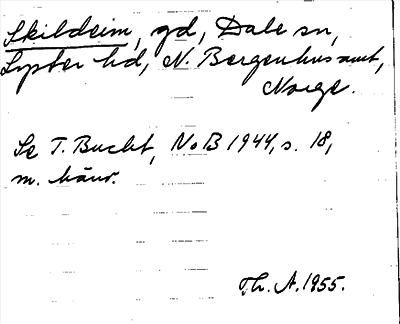 Skildeim, gd, Dale sn,
Lyster hd, N. Bergenhus amt,
Norge.
Se T. Bucht, NoB 1944, s. 18,
m. hänv.
Th. A. 1955.